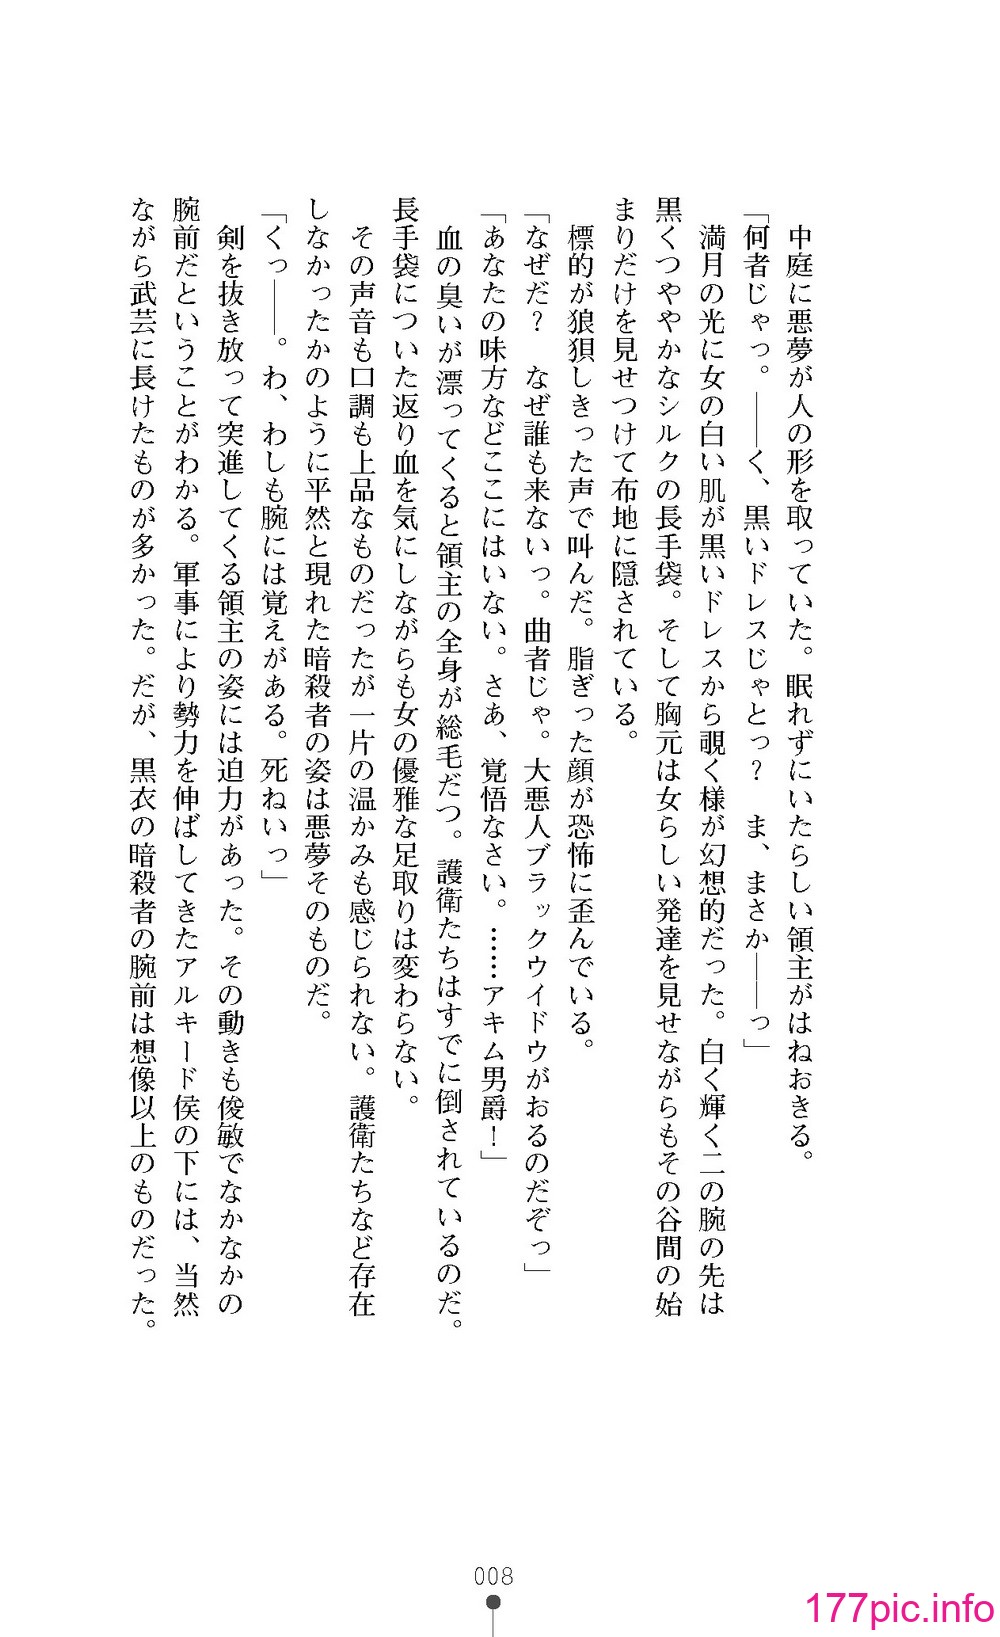 中庭に悪夢が人の形を取っていた。眠れずにいたらしい領主がはねおきる。
「何者じゃっ。――く、黒いドレスじゃとっ？　ま、まさか――っ」
　満月の光に女の白い肌が黒いドレスから覗く様が幻想的だった。白く輝く二の腕の先は
黒くつややかなシルクの長手袋。そして胸元は女らしい発達を見せながらもその谷間の始
まりだけを見せつけて布地に隠されている。
　標的が狼狽しきった声で叫んだ。脂ぎった顔が恐怖に歪んでいる。
「なぜだ？　なぜ誰も来ないっ。曲者じゃ。大悪人ブラックウイドウがおるのだぞっ」
「あなたの味方などここにはいない。さあ、覚悟なさい。……アキム男爵！」
　血の臭いが漂ってくると領主の全身が総毛だつ。護衛たちはすでに倒されているのだ。
長手袋についた返り血を気にしながらも女の優雅な足取りは変わらない。
　その声音も口調も上品なものだったが一片の温かみも感じられない。護衛たちなど存在
しなかったかのように平然と現れた暗殺者の姿は悪夢そのものだ。
「くっ――。わ、わしも腕には覚えがある。死ねいっ」
　剣を抜き放って突進してくる領主の姿には迫力があった。その動きも俊敏でなかなかの
腕前だということがわかる。軍事により勢力を伸ばしてきたアルキード侯の下には、当然
ながら武芸に長けたものが多かった。だが、黒衣の暗殺者の腕前は想像以上のものだった。
008
177pic.info